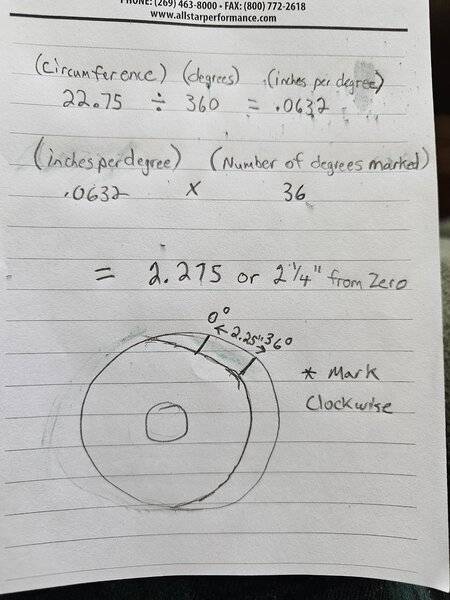 PHONE: (269) 463-8000 • FAX: (800) 772-2618
www.allstarperformance.com
(Circumference) (degrees) (inches per degree)
22.75 ÷ 360 = .0632
(inches per degree) (Number of degrees marked)
.0632 x 36
= 2.275 or 2 1/4" from Zero
0° 2.25" 36°
* Mark
Clockwise